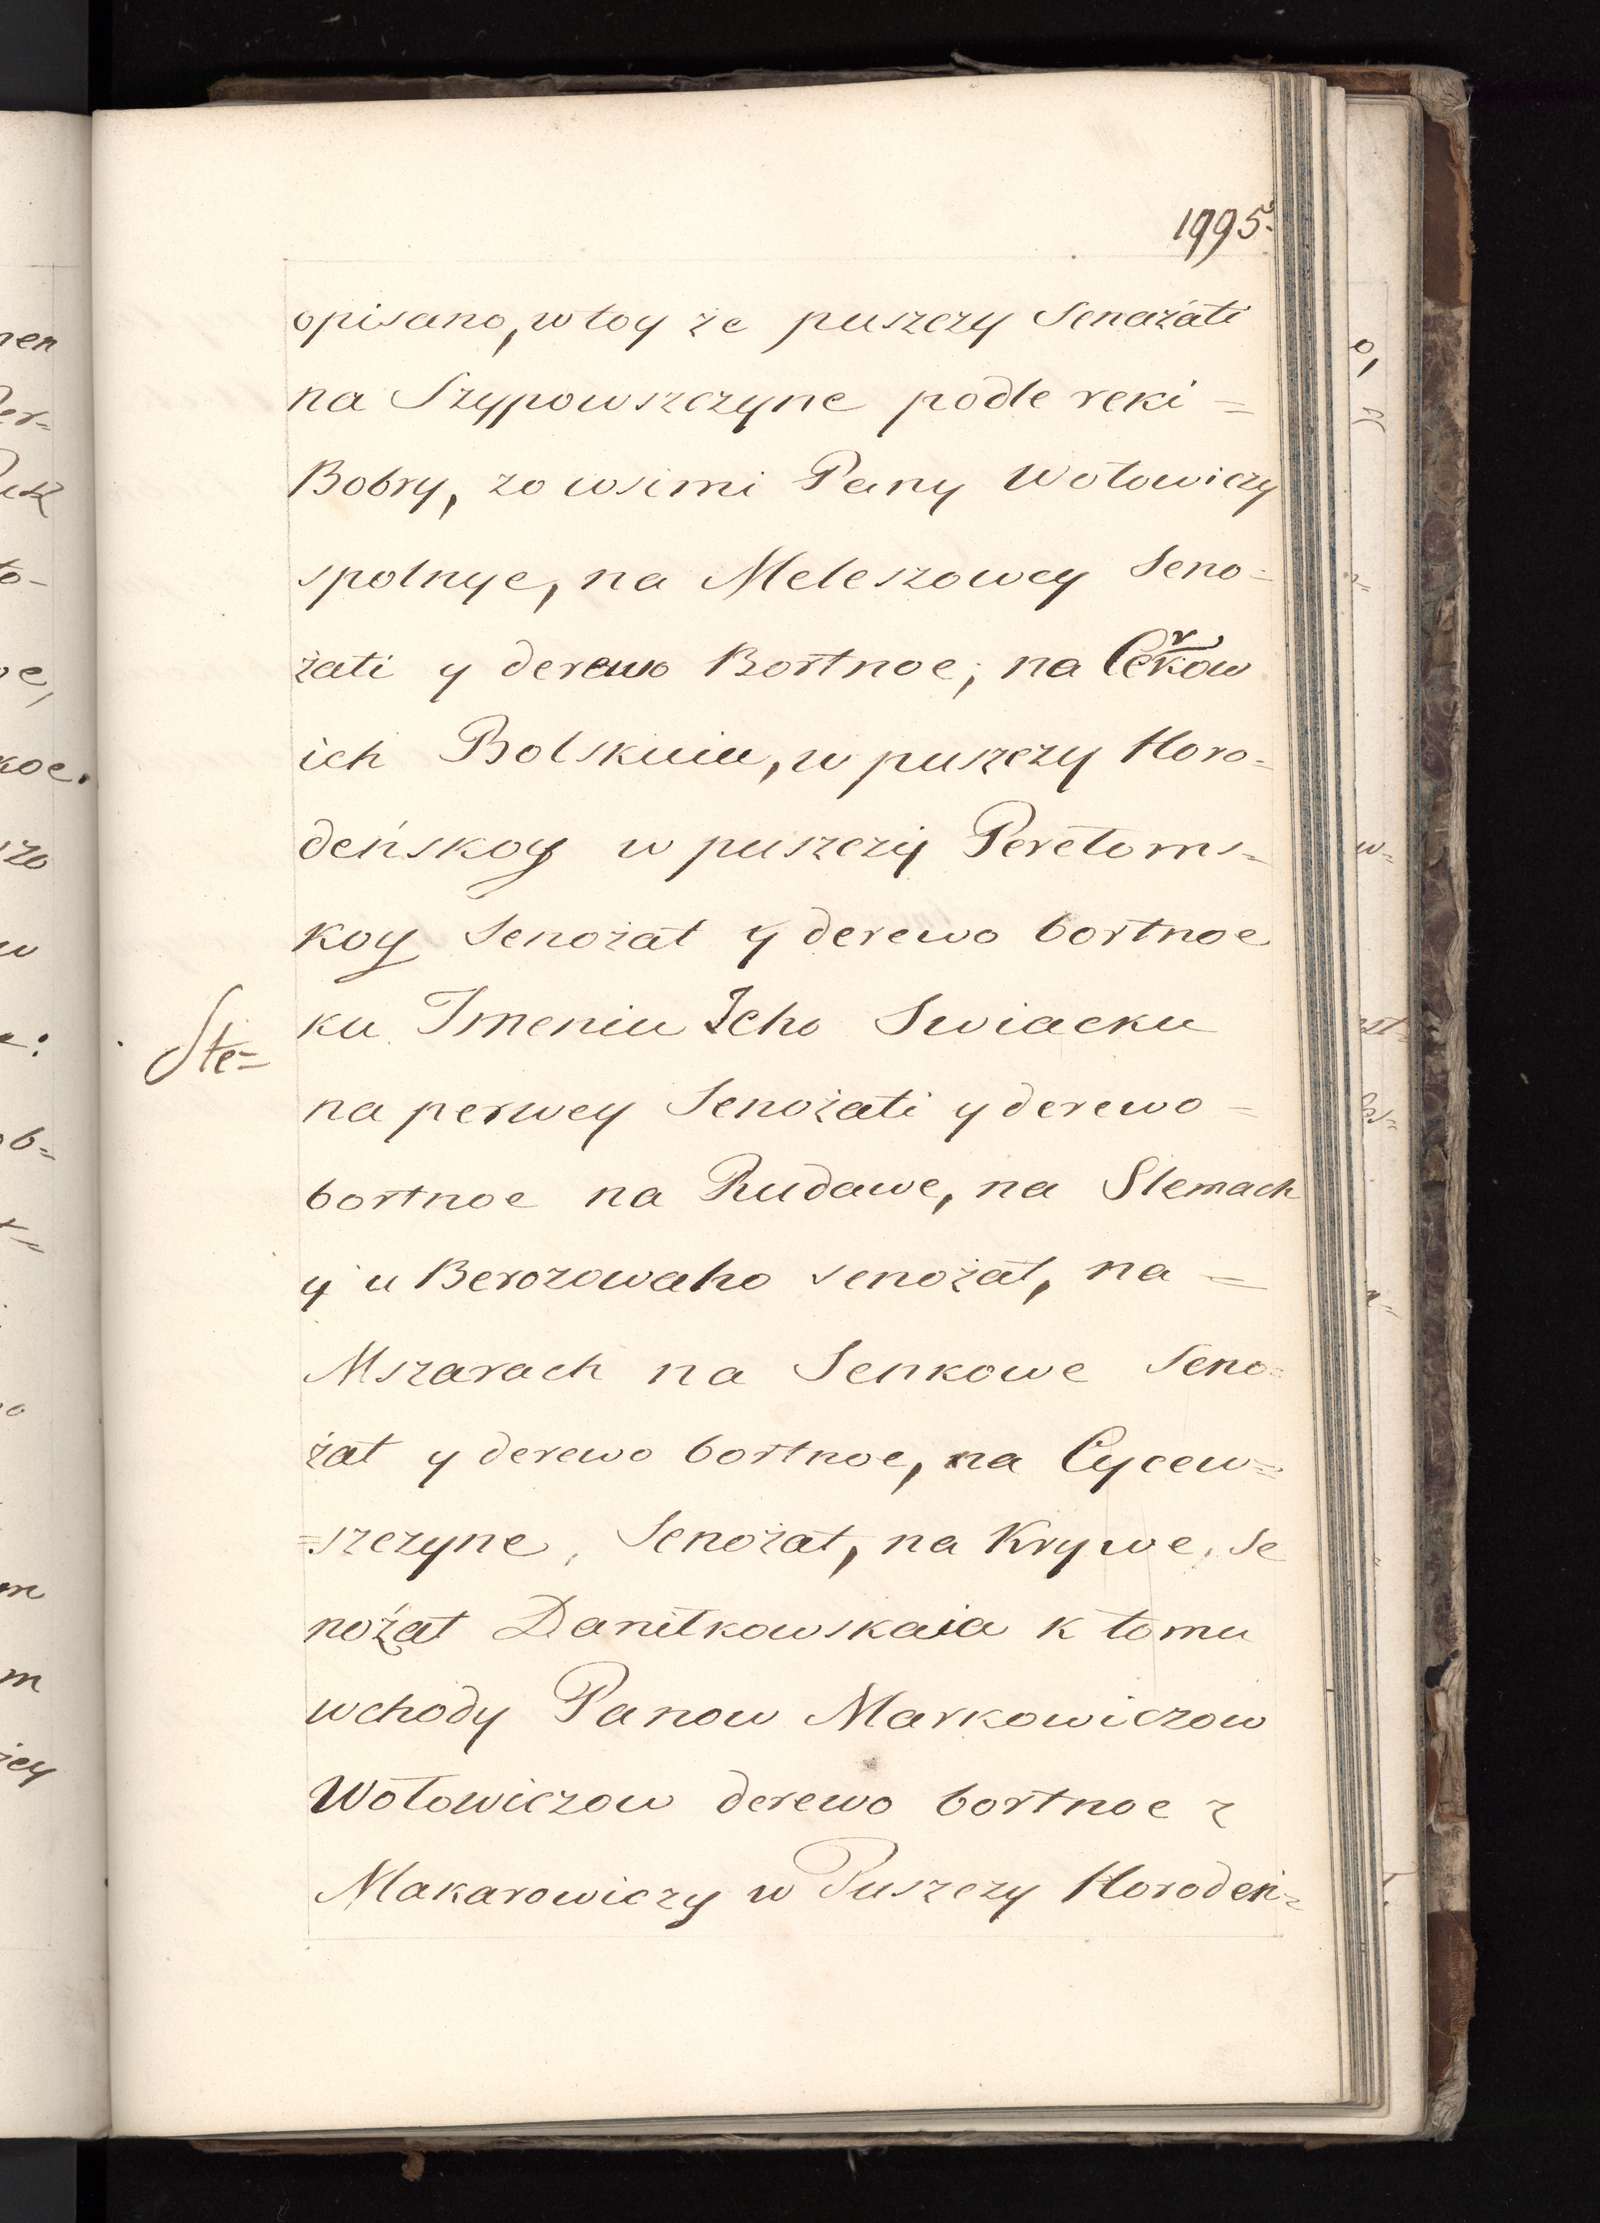 1995.
opisano, w toy że puszczy Senażáti
na Szypowszczyne podle reki =
Bobry, zo wsimi Pany Wołowiczy
spolnye, na Meleszowey Seno=
żati y derewo Bortnoe; na Cerkow
ich Bolskuiu, w puszczy Horo=
deńskoy w puszczy Perełoms=
koy Senożat y derewo bortnoe
ku Imeniu Icho Swiacku
Ste=
na perwey Senożati y derewo =
bortnoe na Rudawe, na Slemach
y u Berozowaho senożat, na =
Mszarach na Senkowe Seno=
żat y derewo bortnoe, na Cycew=
=szczyne, Senożat, na Krywe, Se
nożat Daniłkowskaia k tomu
wchody Panow Markowiczow
Wołowiczow derewo bortnoe z
Makarowiczy w Puszczy Horoden=